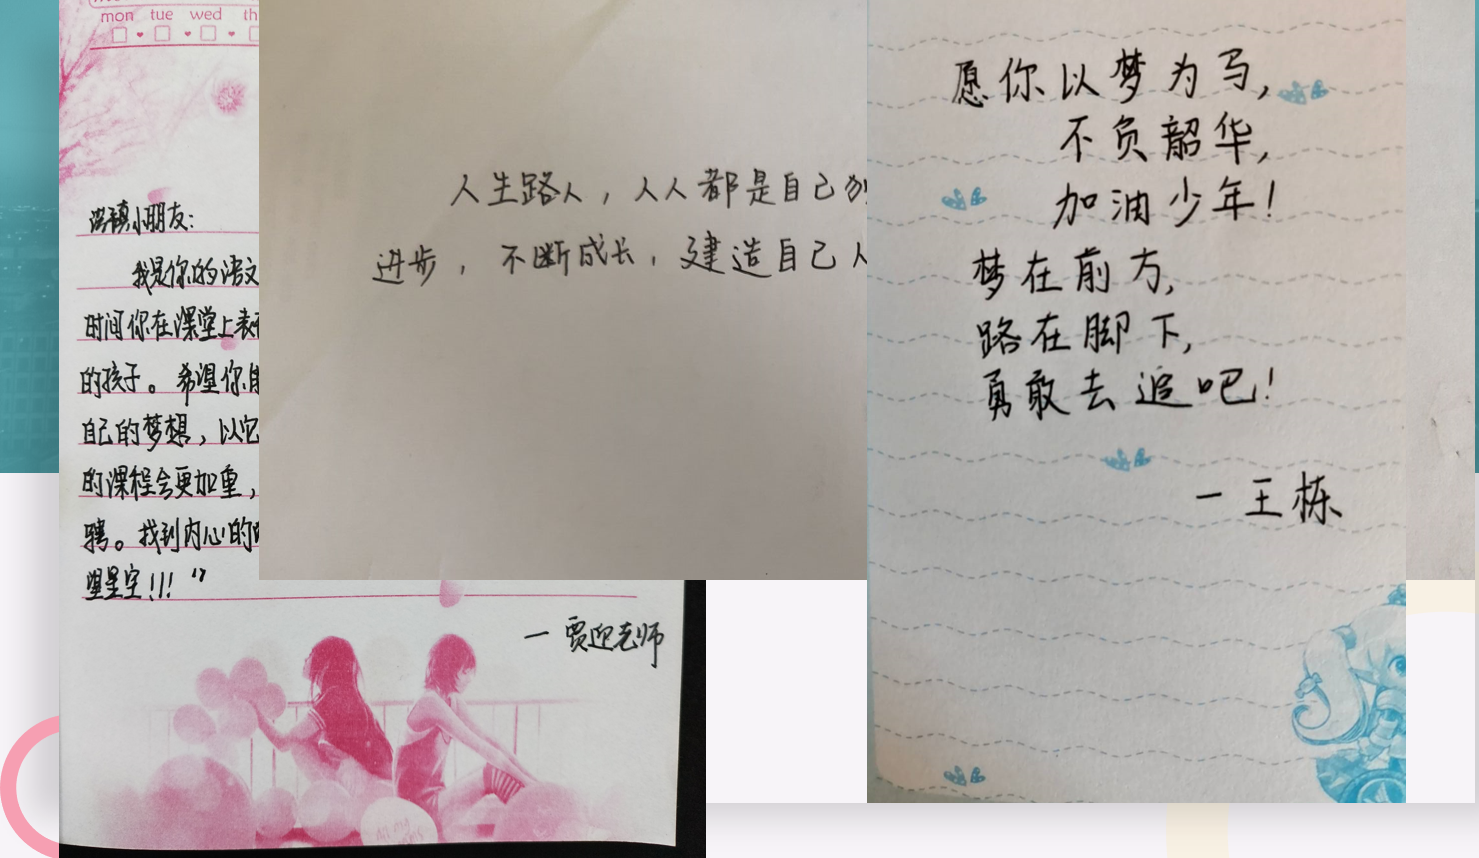 mon tue wed th
浩镇小朋友：
我是你的语文
时间你在课堂上表
的孩子。希望你
自己的梦想，以它
的课程会更加重，
骋。找到内心的
望星空!!!"
—贾迎老师
人生路人，人人都是自己
进步，不断成长，建造自己人
愿你以梦为马，
不负韶华，
加油少年！
梦在前方，
路在脚下，
勇敢去追吧！
—王栋